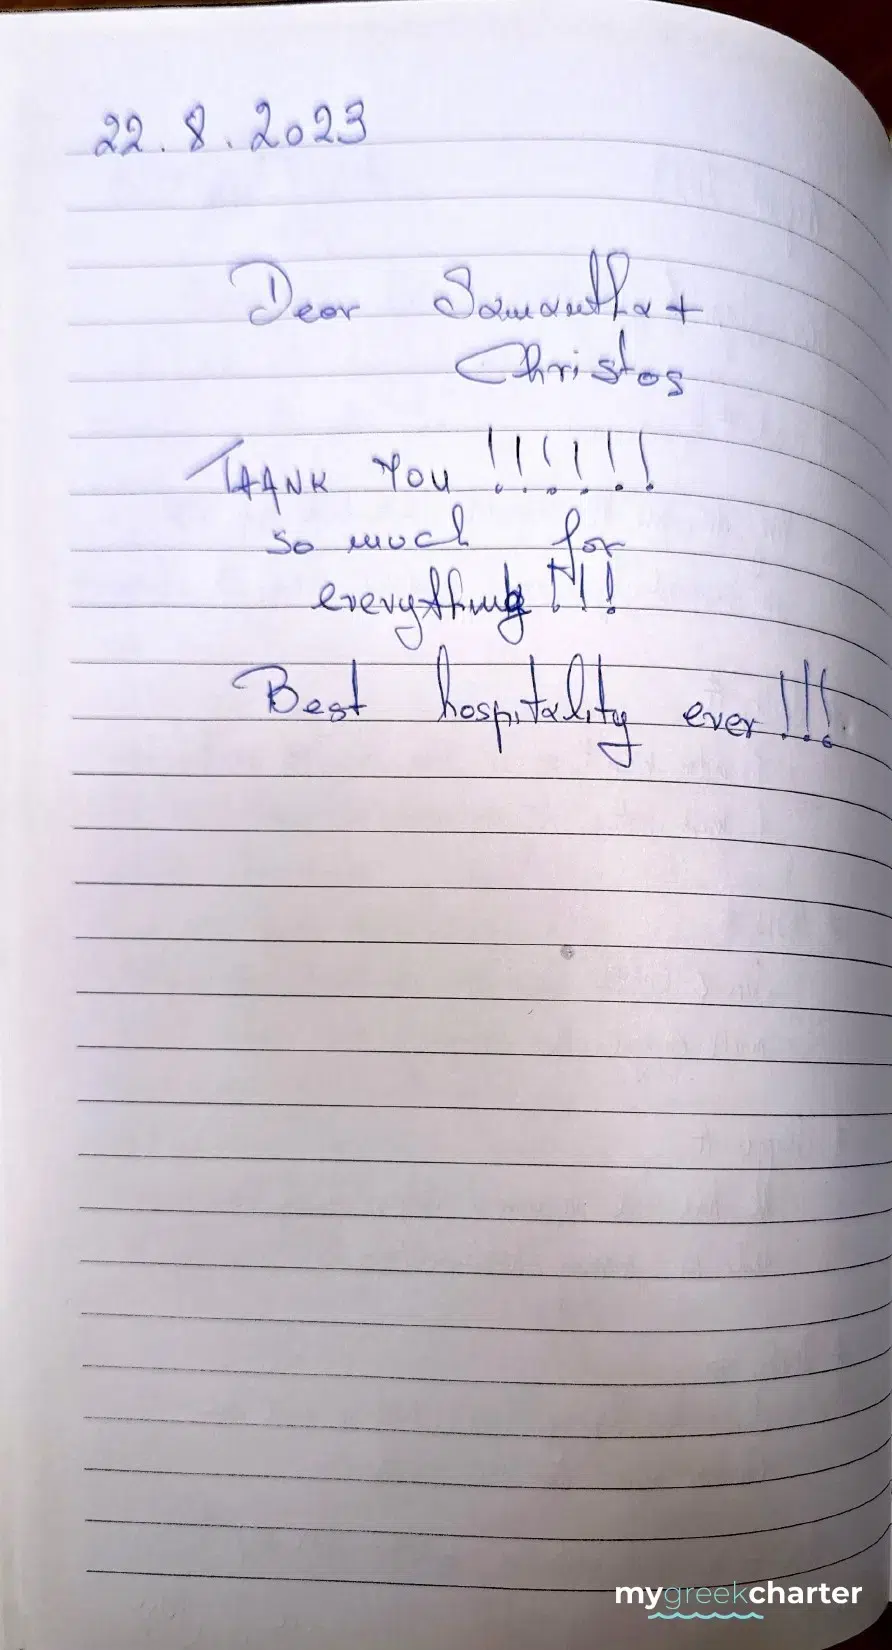 22.8.2023
Dear Samantha +
Christos
THANK YOU !!!!!!
so much for
everything !!!
Best hospitality ever !!!
mygreekcharter